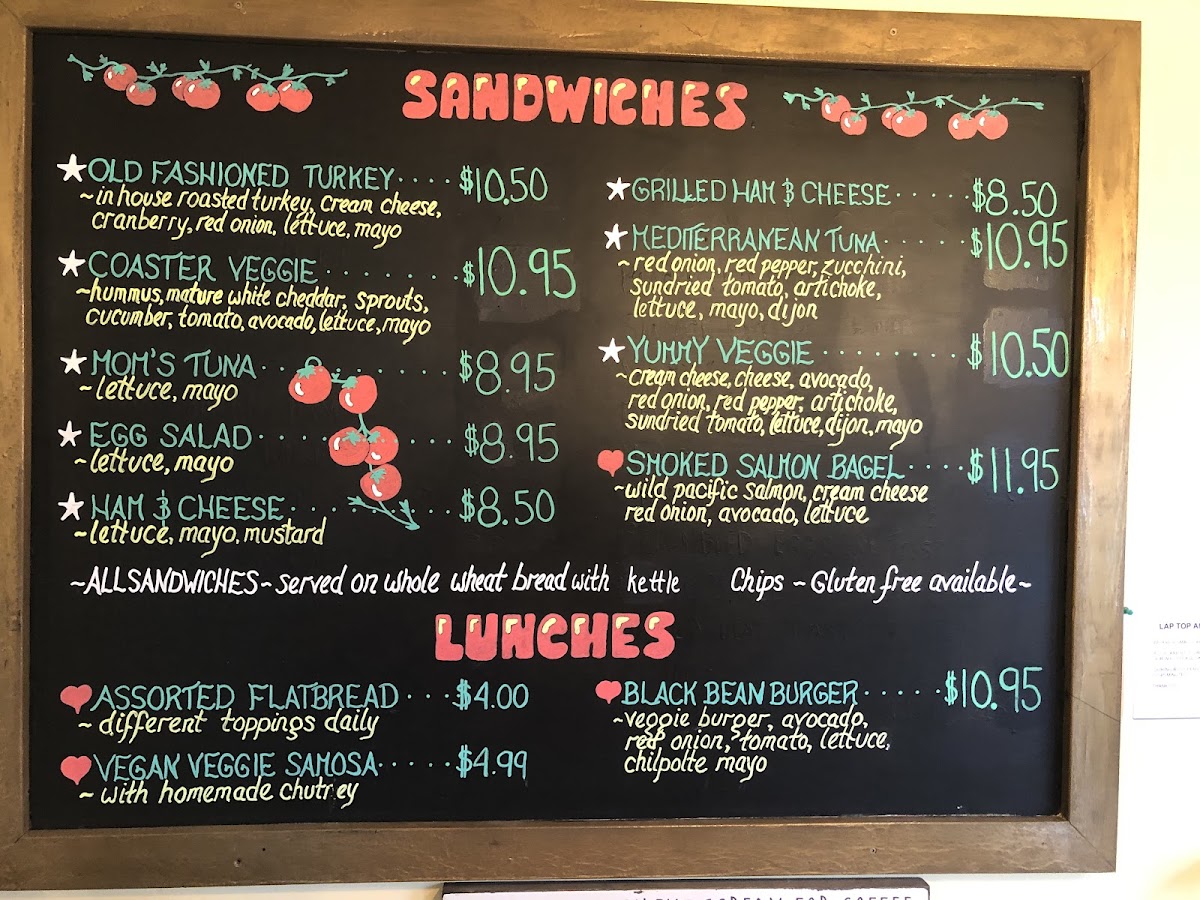 SANDWICHES
OLD FASHIONED TURKEY.... $10.50
~in house roasted turkey, cream cheese,
cranberry, red onion, lettuce, mayo
COASTER VEGGIE ........ $10.95
~hummus, mature white cheddar, sprouts,
cucumber, tomato, avocado, lettuce, mayo
MOM'S TUNA ........ $8.95
~lettuce, mayo
EGG SALAD ........ $8.95
~lettuce, mayo
HAM & CHEESE ........ $8.50
~lettuce, mayo, mustard
GRILLED HAM & CHEESE ..... $8.50
MEDITERRANEAN TUNA ..... $10.95
~red onion, red pepper, zucchini,
sundried tomato, artichoke,
lettuce, mayo, dijon
YUMMY VEGGIE ........ $10.50
~cream cheese, cheese, avocado,
red onion, red pepper, artichoke,
sundried tomato, lettuce, dijon, mayo
SMOKED SALMON BAGEL.... $11.95
~wild pacific salmon, cream cheese
red onion, avocado, lettuce
~ALL SANDWICHES~ served on whole wheat bread with kettle Chips ~ Gluten free available~
LUNCHES
ASSORTED FLATBREAD ... $4.00
~ different toppings daily
VEGAN VEGGIE SAMOSA..... $4.99
~ with homemade chutney
BLACK BEAN BURGER ..... $10.95
~veggie burger, avocado,
red onion, tomato, lettuce,
chilpolte mayo
LAP TOP
FOR COFFEE